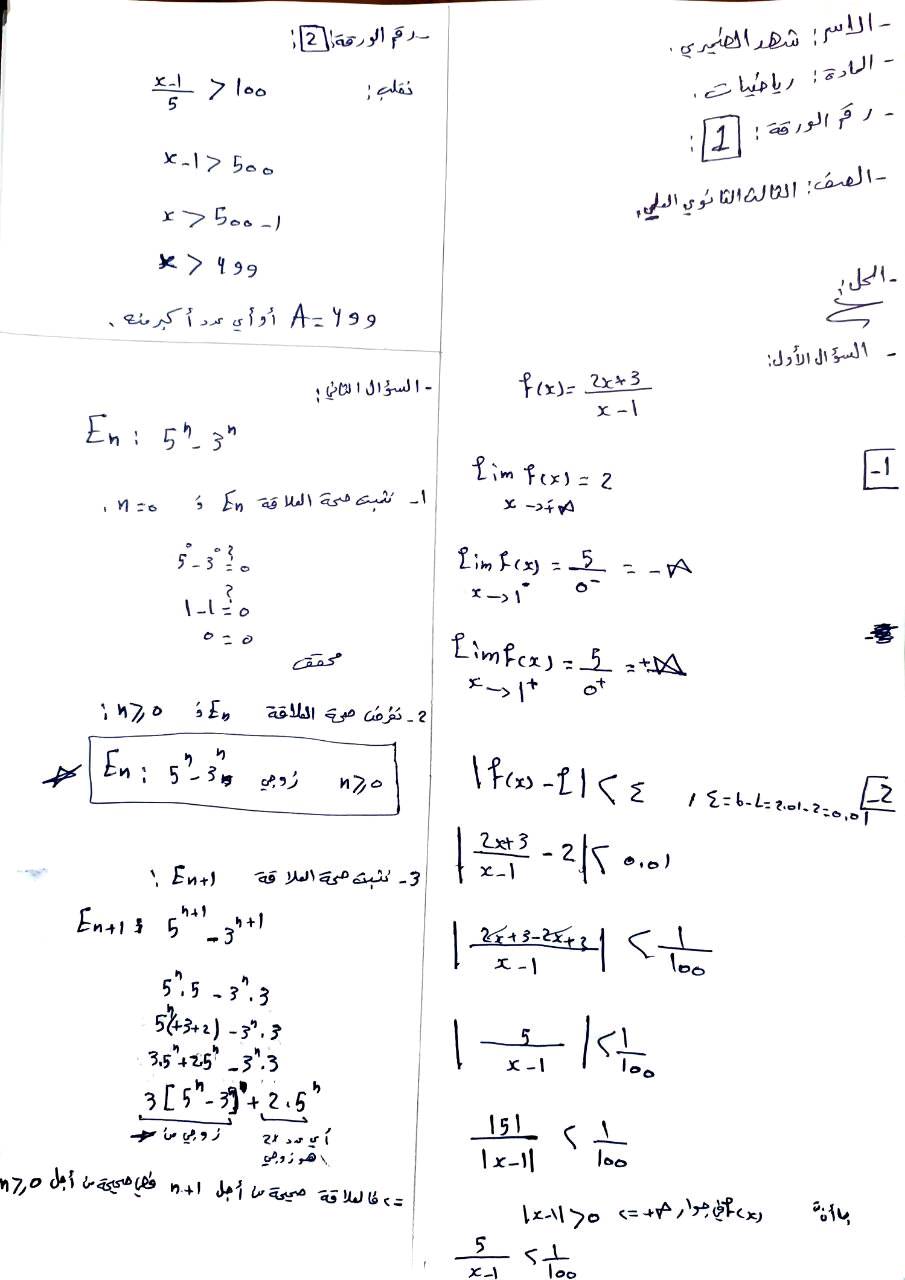 - الاسم: شهد الضميري.
- المادة: رياضيات.
- رقم الورقة: 1:
- الصف: الثالث الثانوي العلمي.
- الحل:
- السؤال الأول:
f(x)= \frac{2x+3}{x-1}
-1
lim f(x) = 2
x→+∞
lim f(x) = \frac{5}{0^-} = -∞
x→1^-
lim f(x) = \frac{5}{0^+} = +∞
x→1^+
-2
|f(x) - ℓ| < ε , ε=b-L=2.01-2=0,01
|\frac{2x+3}{x-1} - 2| < 0,01
|\frac{2x+3-2x+3}{x-1}| < \frac{1}{100}
|\frac{5}{x-1}| < \frac{1}{100}
\frac{|5|}{|x-1|} < \frac{1}{100}
بما أنه f(x) في جوار +∞ => |x-1|>0
\frac{5}{x-1} < \frac{1}{100}
- رقم الورقة: 2:
نقلب:
\frac{x-1}{5} > 100
x-1 > 500
x > 500-1
x > 499
A=499 أو أي عدد أكبر منه.
- السؤال الثاني:
En : 5^n - 3^n
1- نثبت صحة العلاقة En و n=0.
5^0 - 3^0 ?= 0
1-1 ?= 0
0 = 0
محقق
2- نفرض صحة العلاقة En و n≥0:
En : 5^n - 3^n زوجي n≥0
3- نثبت صحة العلاقة En+1:
En+1 : 5^{n+1} - 3^{n+1}
5^n.5 - 3^n.3
5^n(+3+2) - 3^n.3
3.5^n+2.5^n - 3^n.3
3[5^n - 3^n] + 2.5^n
زوجي من
أي عدد 2x
هو زوجي
=> فالعلاقة صحيحة من أجل n+1 فهي صحيحة من أجل n≥0